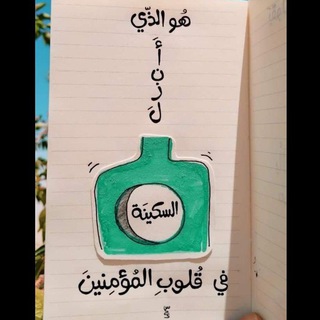 هُو الذّي
أَنزَلَ
السكينَة
في قُلوبِ المُؤمِنينَ